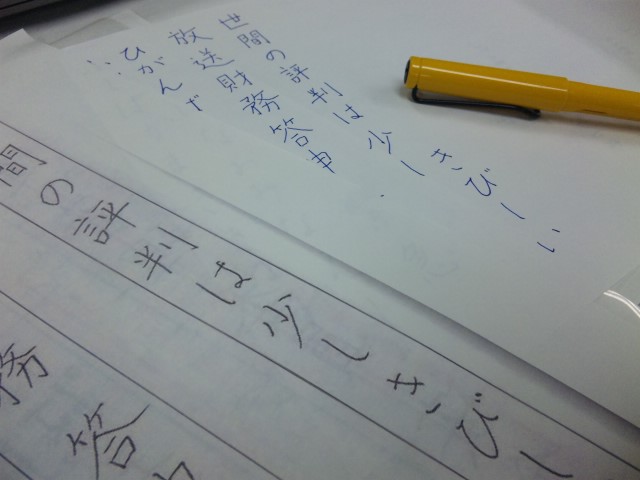 世間の評判は少しきびしい
放送財務答申
ひがん
間の評判は少しきびし
務答